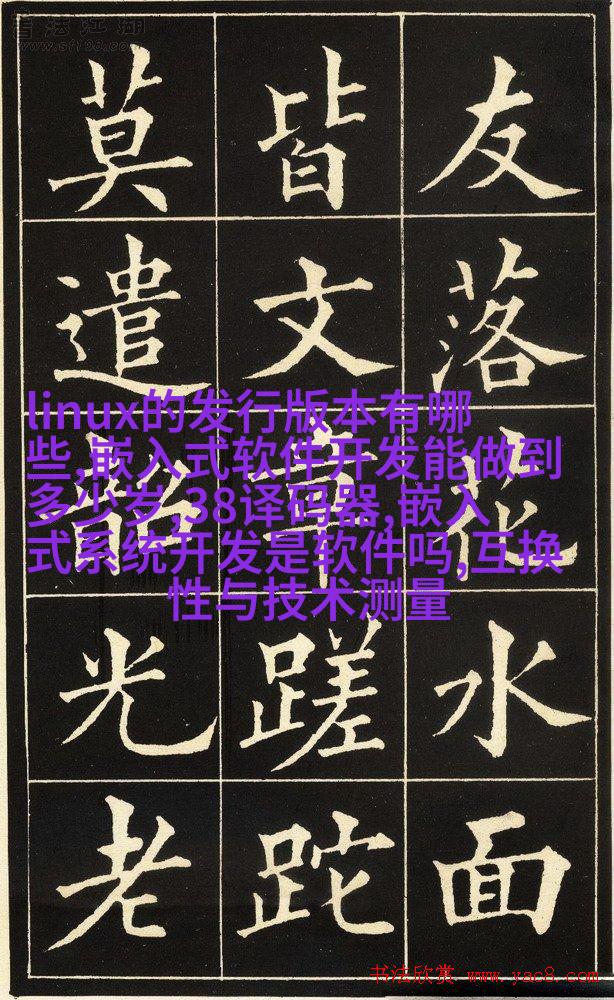 书法江湖
www.sf108.com
友落花水面
皆文章蹉跎
莫遣韶光老
linux的发行版本有哪
些,嵌入式软件开发能做到
多少岁,38译码器,嵌入
式系统开发是软件吗,互换
性与技术测量
书法欣赏 www.yac8.com